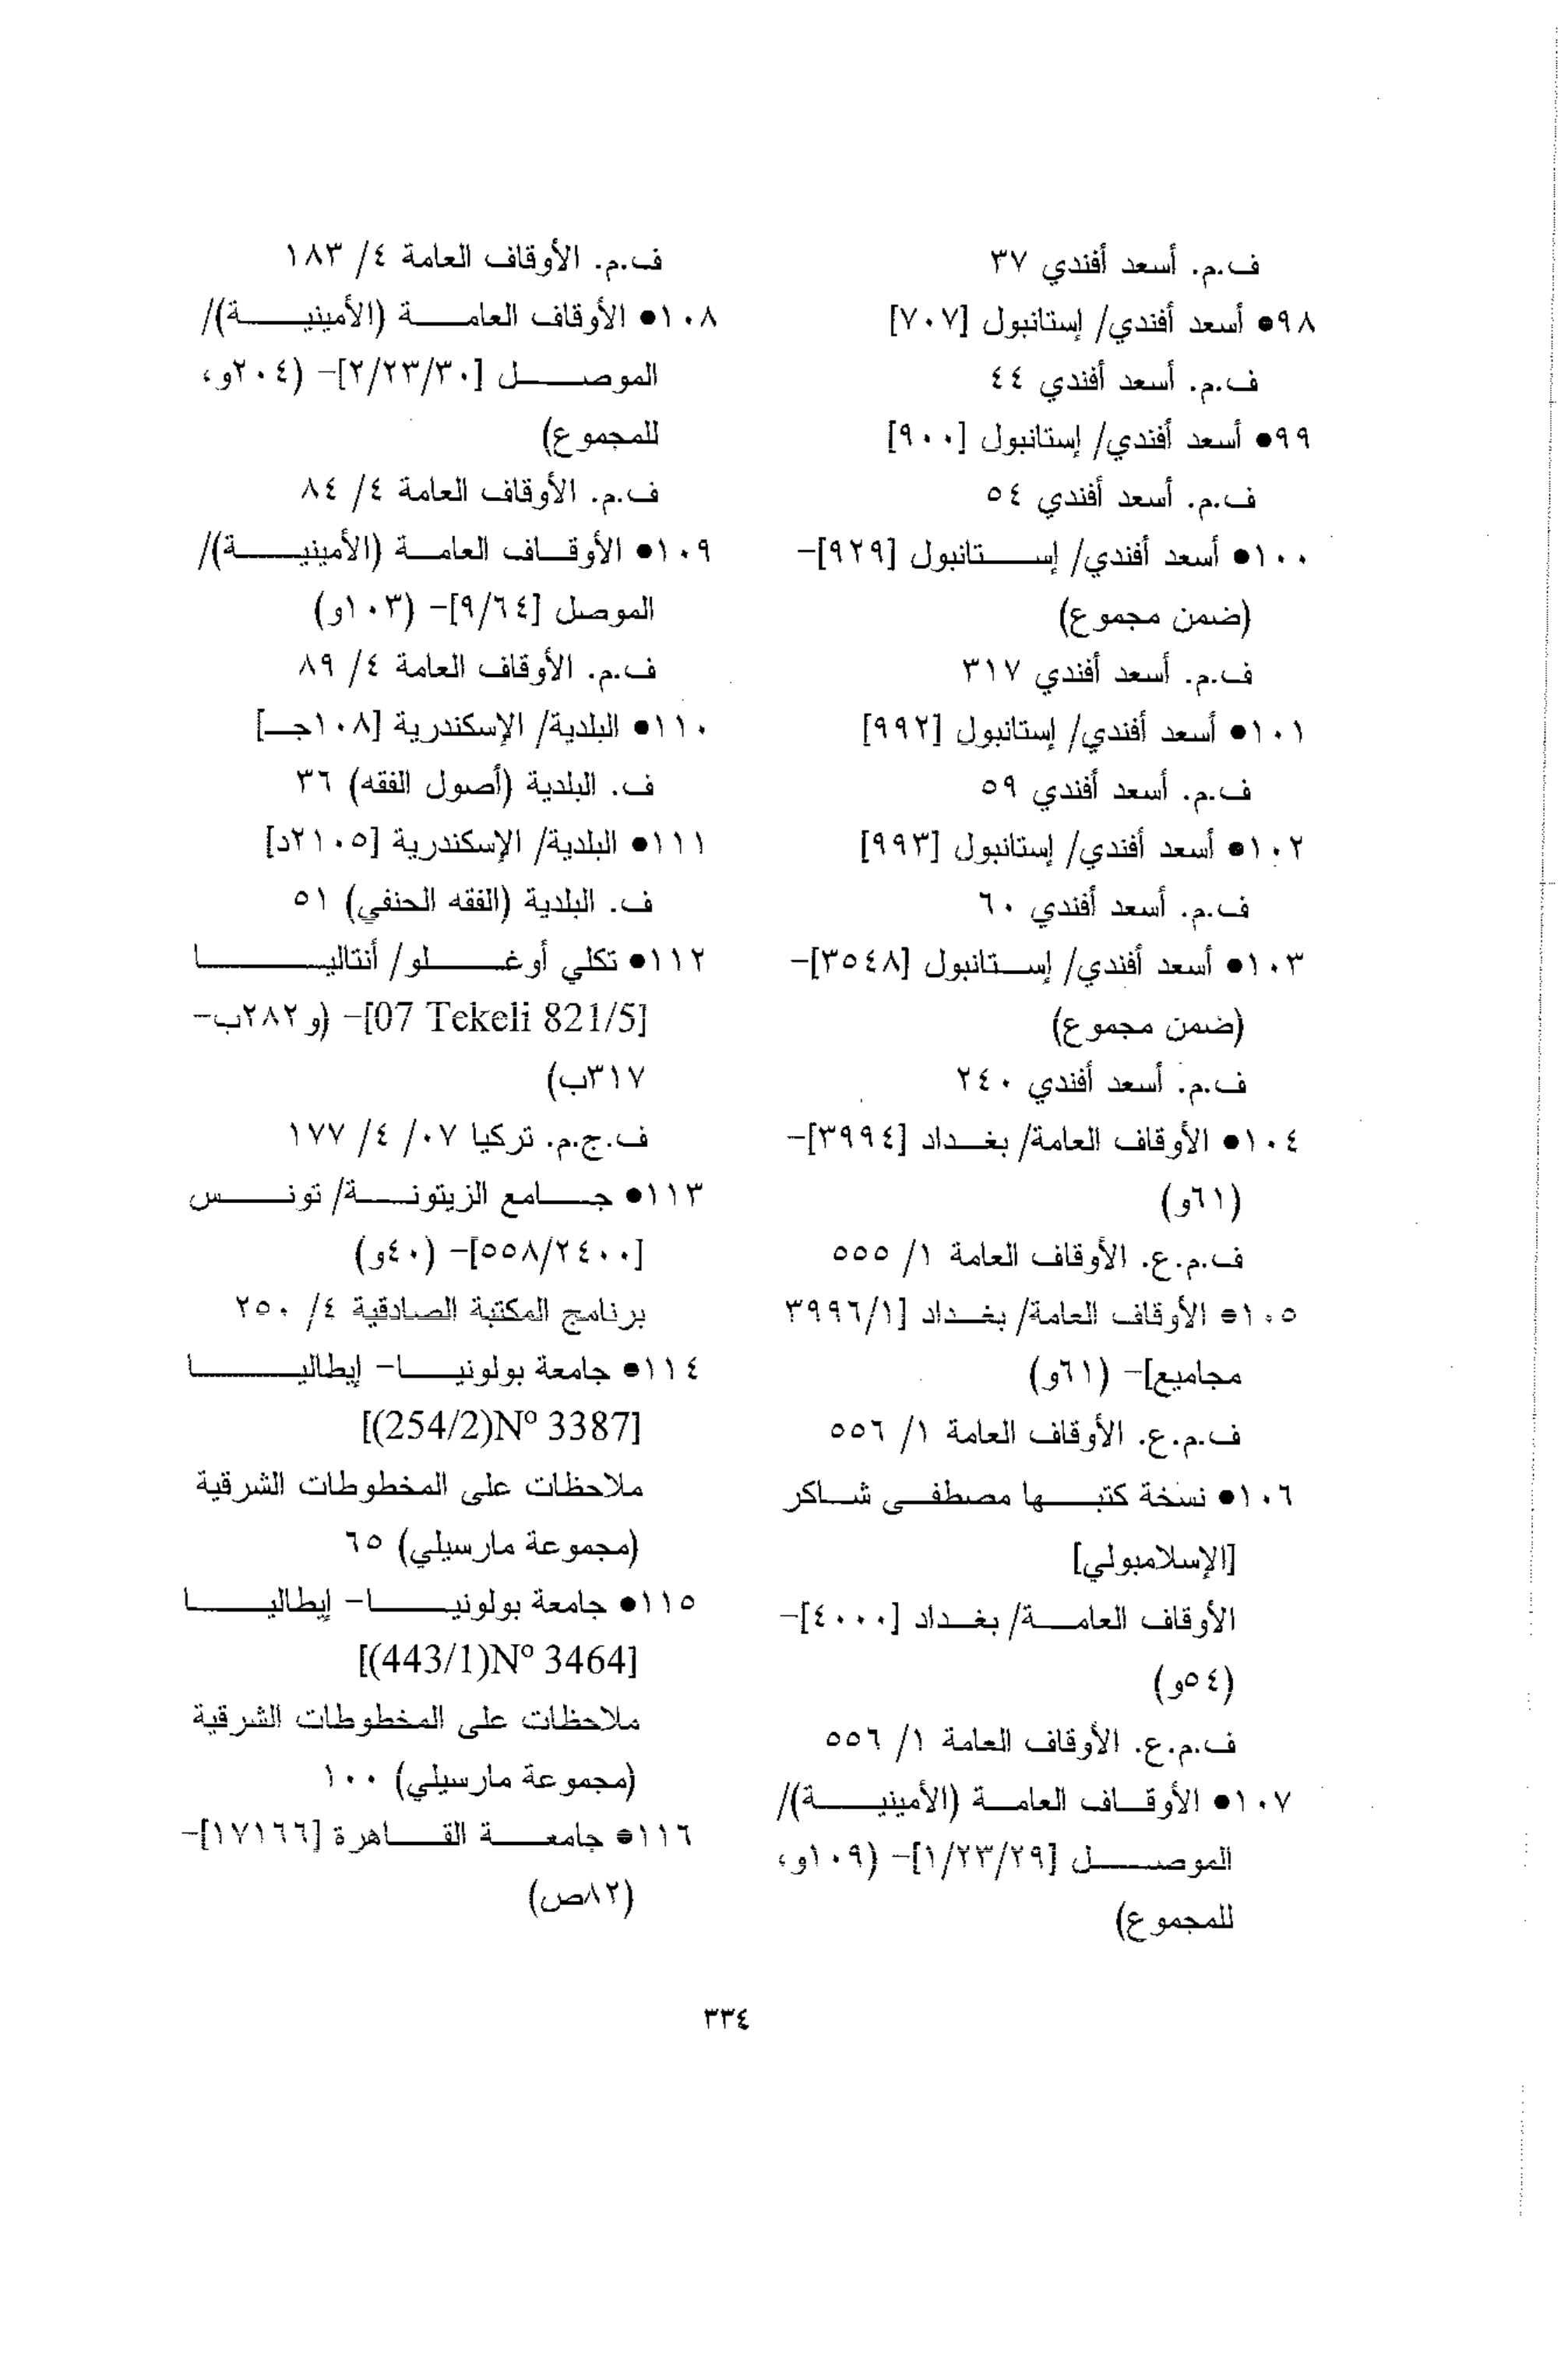 ف.م. أسعد أفندي ٣٧
٩٨● أسعد أفندي/ إستانبول [٧٠٧]
ف.م. أسعد أفندي ٤٤
٩٩● أسعد أفندي/ إستانبول [٩٠٠]
ف.م. أسعد أفندي ٥٤
١٠٠● أسعد أفندي/ إستانبول [٩٢٩]-
(ضمن مجموع)
ف.م. أسعد أفندي ٣١٧
١٠١● أسعد أفندي/ إستانبول [٩٩٢]
ف.م. أسعد أفندي ٥٩
١٠٢● أسعد أفندي/ إستانبول [٩٩٣]
ف.م. أسعد أفندي ٦٠
١٠٣● أسعد أفندي/ إستانبول [٣٥٤٨]-
(ضمن مجموع)
ف.م. أسعد أفندي ٢٤٠
١٠٤● الأوقاف العامة/ بغداد [٣٩٩٤]-
(٦١و)
ف.م.ع. الأوقاف العامة ١/ ٥٥٥
١٠٥● الأوقاف العامة/ بغداد [٣٩٩٦/١
مجاميع]- (٦١و)
ف.م.ع. الأوقاف العامة ١/ ٥٥٦
١٠٦● نسخة كتبها مصطفى شاكر
[الإسلامبولي]
الأوقاف العامة/ بغداد [٤٠٠٠]-
(٥٤و)
ف.م.ع. الأوقاف العامة ١/ ٥٥٦
١٠٧● الأوقاف العامة (الأمينية)/
الموصل [١/٢٣/٢٩]- (١٠٩و،
للمجموع)
ف.م. الأوقاف العامة ٤/ ١٨٣
١٠٨● الأوقاف العامة (الأمينية)/
الموصل [٢/٢٣/٣٠]- (٢٠٤و،
للمجموع)
ف.م. الأوقاف العامة ٤/ ٨٤
١٠٩● الأوقاف العامة (الأمينية)/
الموصل [٩/٦٤]- (١٠٣و)
ف.م. الأوقاف العامة ٤/ ٨٩
١١٠● البلدية/ الإسكندرية [١٠٨جـ]
ف. البلدية (أصول الفقه) ٣٦
١١١● البلدية/ الإسكندرية [٢١٠٥د]
ف. البلدية (الفقه الحنفي) ٥١
١١٢● تكلي أوغلو/ أنتاليا
[07 Tekeli 821/5]- (و ٢٨٢ب-
٣١٧ب)
ف.ج.م. تركيا ٠٧/ ٤/ ١٧٧
١١٣● جامع الزيتونة/ تونس
[٥٥٨/٢٤٠٠]- (٤٠و)
برنامج المكتبة الصادقية ٤/ ٢٥٠
١١٤● جامعة بولونيا- إيطاليا
[(254/2)Nº 3387]
ملاحظات على المخطوطات الشرقية
(مجموعة مارسيلي) ٦٥
١١٥● جامعة بولونيا- إيطاليا
[(443/1)Nº 3464]
ملاحظات على المخطوطات الشرقية
(مجموعة مارسيلي) ١٠٠
١١٦● جامعة القاهرة [١٧١٦٦]-
(٨٢ص)
٣٣٤